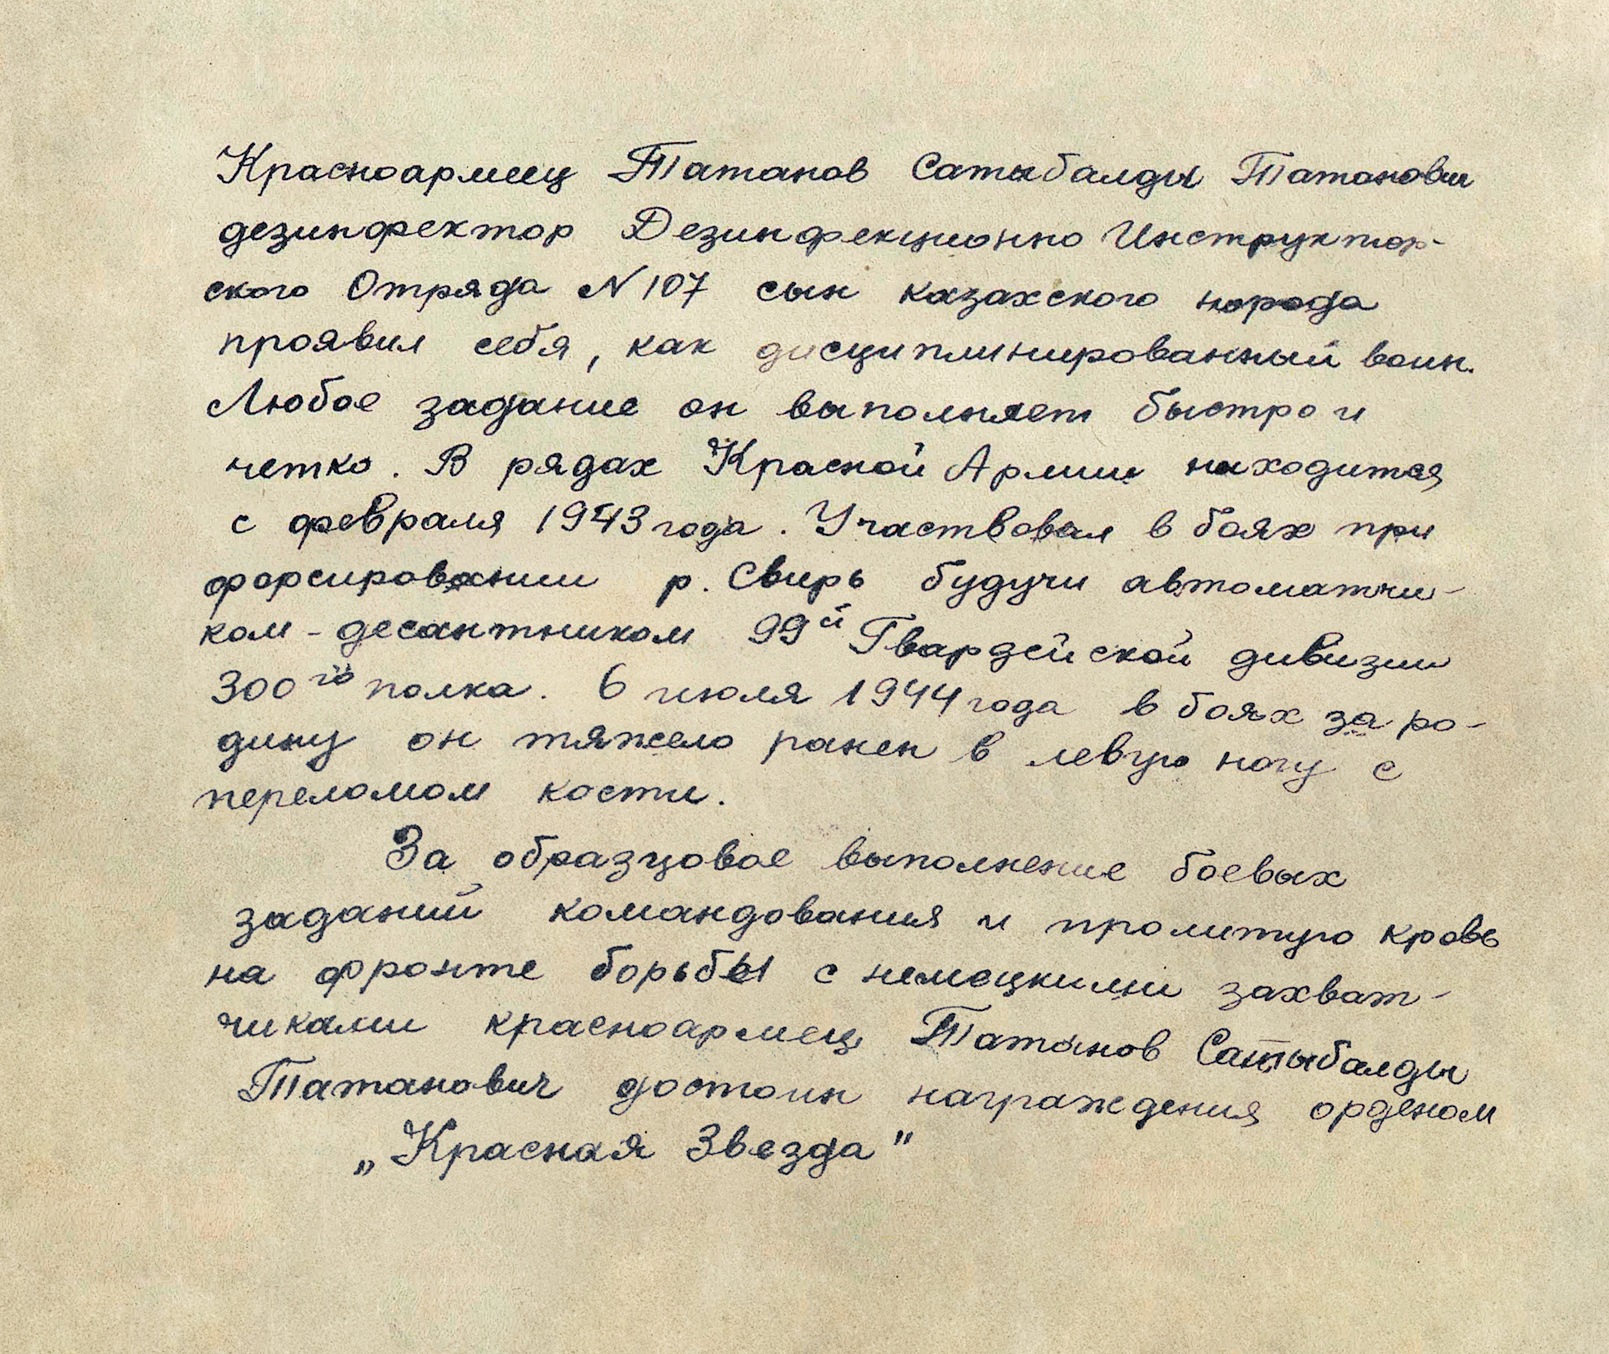 Красноармеец Татанов Сатыбалды Татанович
дезинфектор Дезинфекционно Инструктор-
ского Отряда N 107 сын казахского народа
проявил себя, как дисциплинированный воин.
Любое задание он выполняет быстро и
четко. В рядах Красной Армии находится
с февраля 1943 года. Участвовал в боях при
форсировании р. Свирь будучи автоматчи-
ком-десантником 99й Гвардейской дивизии
300го полка. 6 июля 1944 года в боях за ро-
дину он тяжело ранен в левую ногу с
переломом кости.
За образцовое выполнение боевых
заданий командования и пролитую кровь
на фронте борьбы с немецкими захват-
чиками красноармеец Татанов Сатыбалды
Татанович достоин награждения орденом
„Красная Звезда"